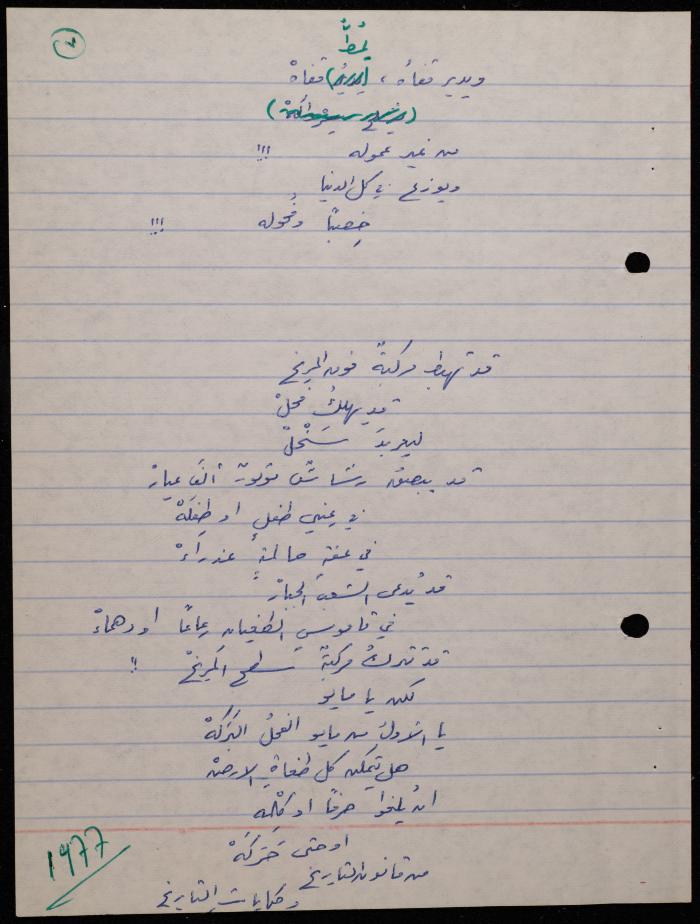 يمُطُّ
ويدير قفاهُ ، (يديرُ) قفاهْ
من غير عموله !!!
ويوزع في كل الدنيا
خِصبًا وفُحوله !!!
قد تهبط مركبةٌ فوق المريخ
قد يهلكُ فحلْ
ليعربدَ سَخْلْ
قد يبصق رشاشٌ مؤتورٌ ألفَ عيارْ
في عيني طفلٍ او طِفلَهْ
في عفة حالمةٍ عذراءْ
قد يُدعى الشعبُ الجبارْ
في قاموسِ الطغيان رعاعًا او دهماءْ
قد تدركُ مركبةٌ سطحَ المريخْ !!
لكن يا مايو
يا الاولُ من مايو الفحلُ البَرَكَهْ
هل تمكن كل طغاةِ الارضْ
انْ يلغوا حرفًا او كِلْمه
او حتى حَرَكَهْ
من قانون التاريخ
وحكايات التاريخ
١٩٧٧